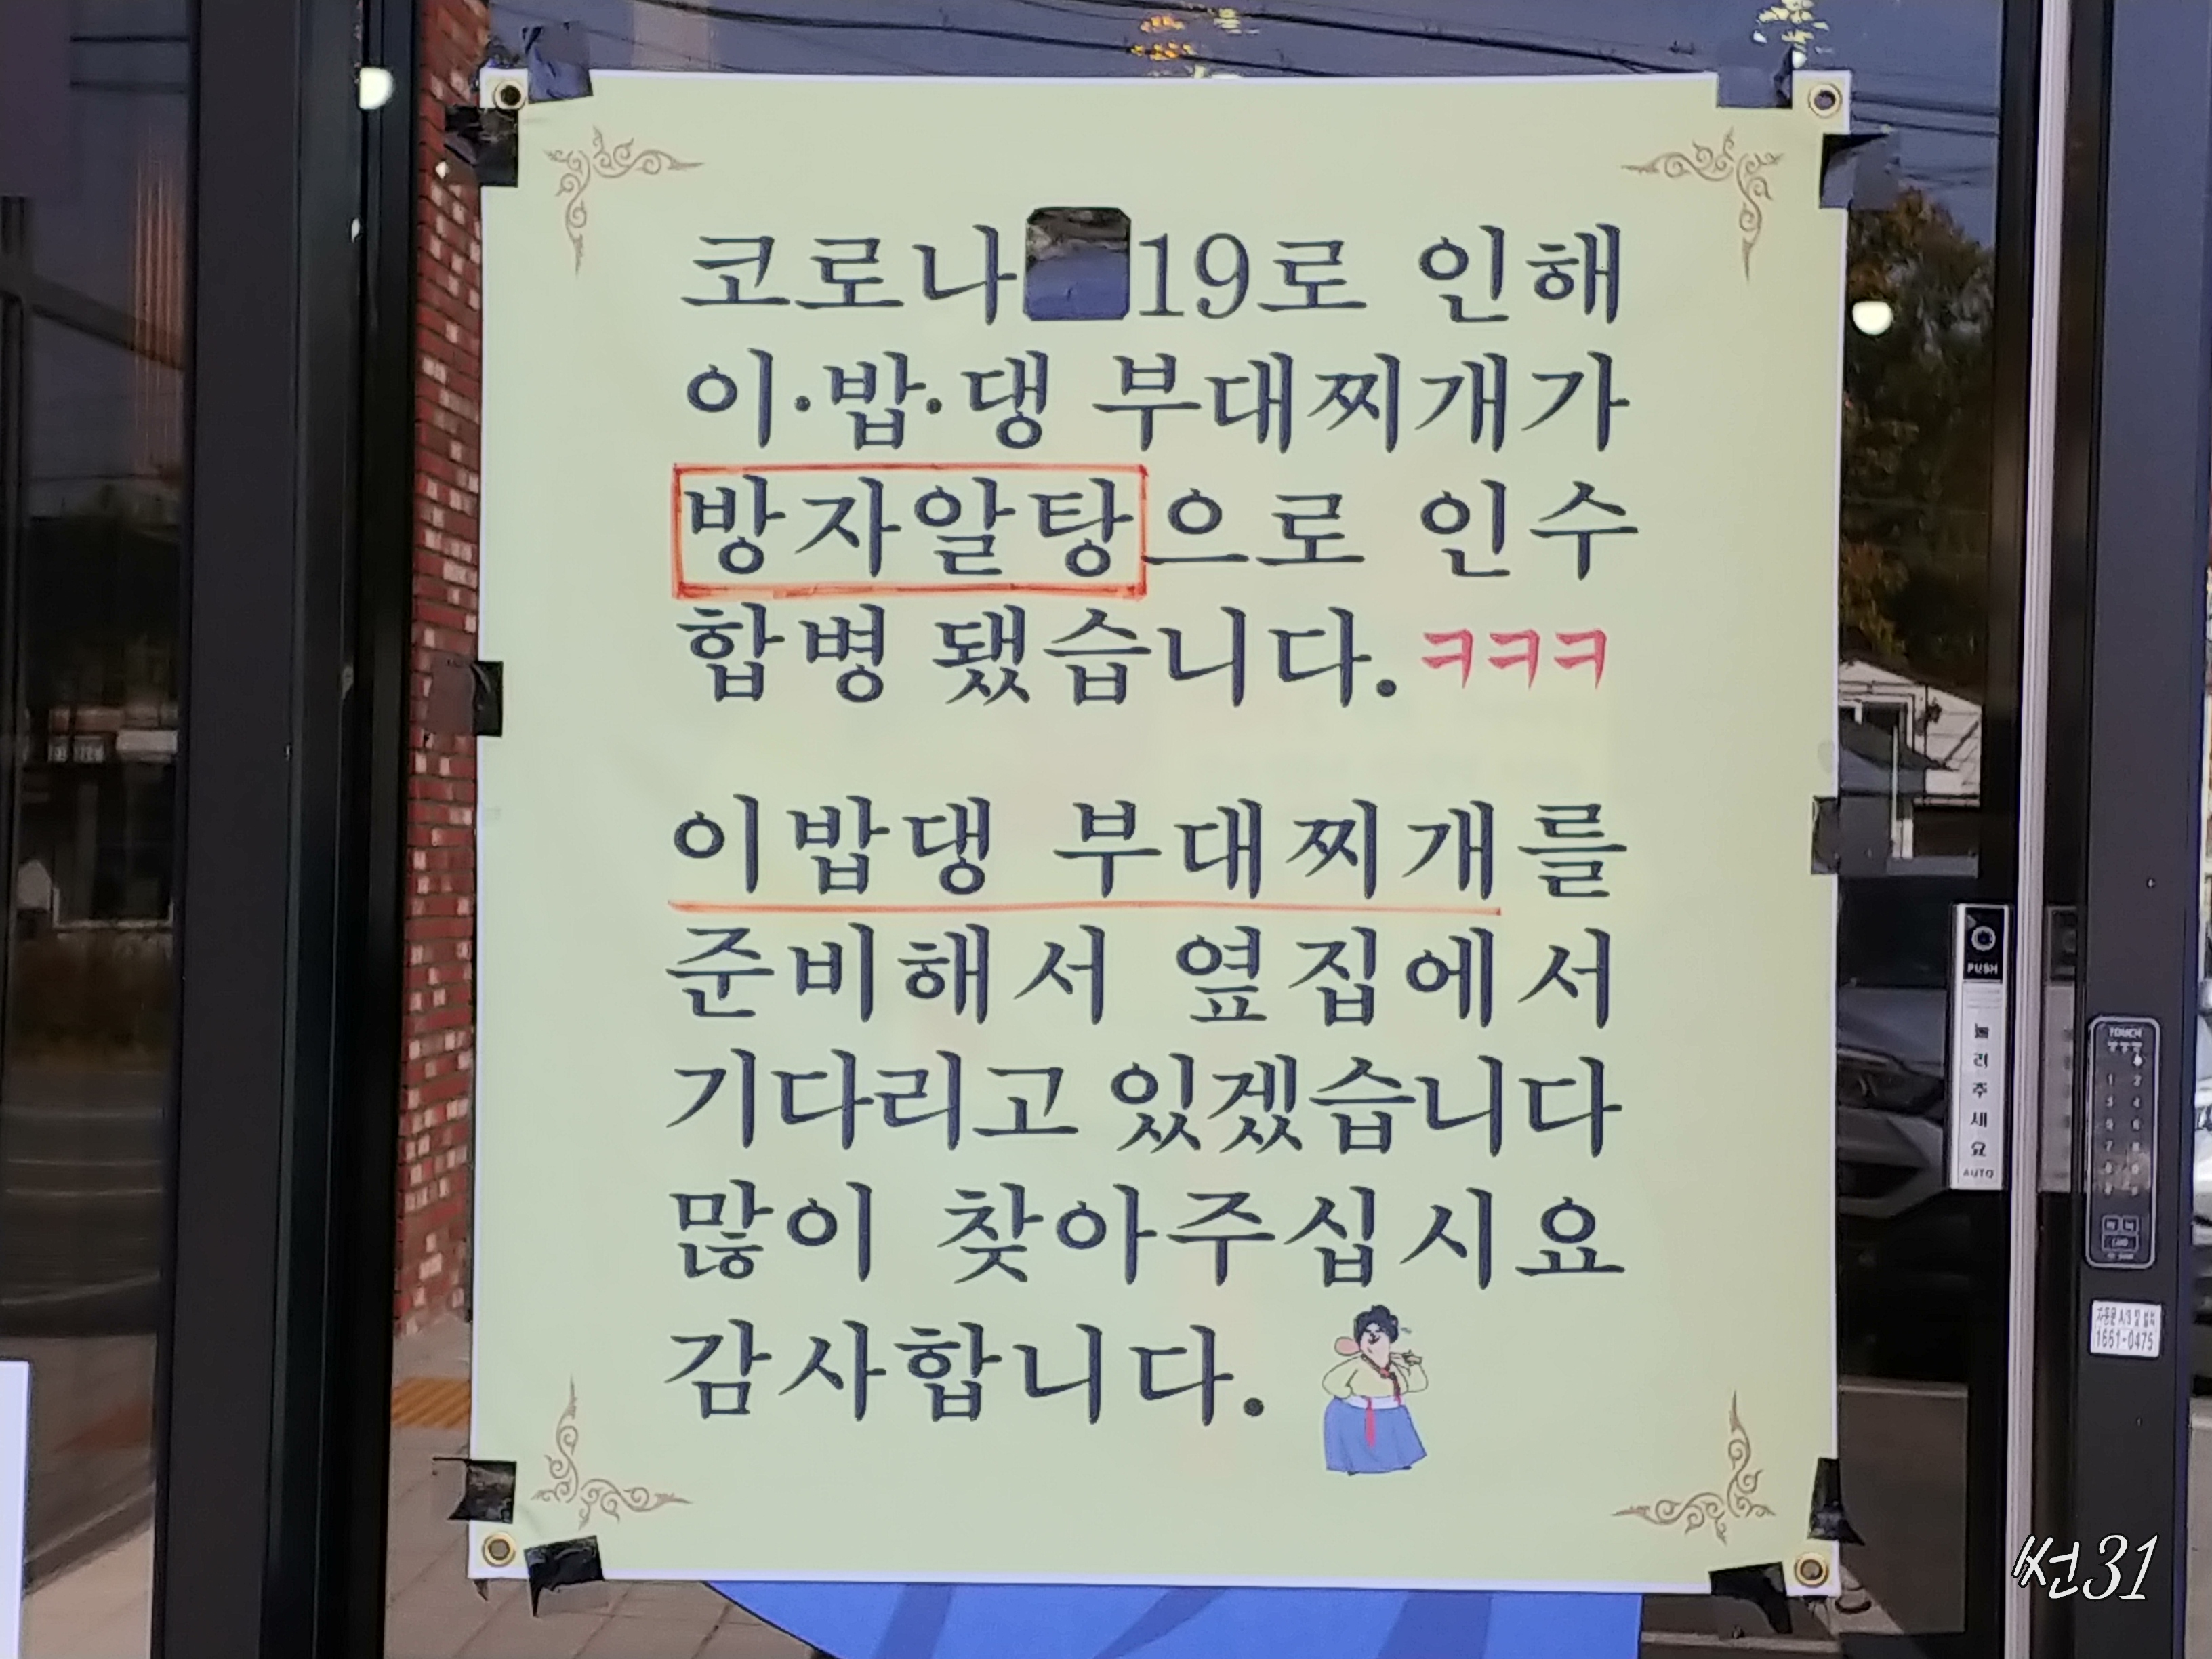 코로나 19로 인해
이·밥·댕 부대찌개가
방자알탕으로 인수
합병 됐습니다. ㅋㅋㅋ
이밥댕 부대찌개를
준비해서 옆집에서
기다리고 있겠습니다
많이 찾아주십시요
감사합니다.
PUSH
눌러주세요
AUTO
TOUCH
1 2
3 4
5 6
7 8
9 0
자동문 A/S 및 설치
1661-0475
썬31